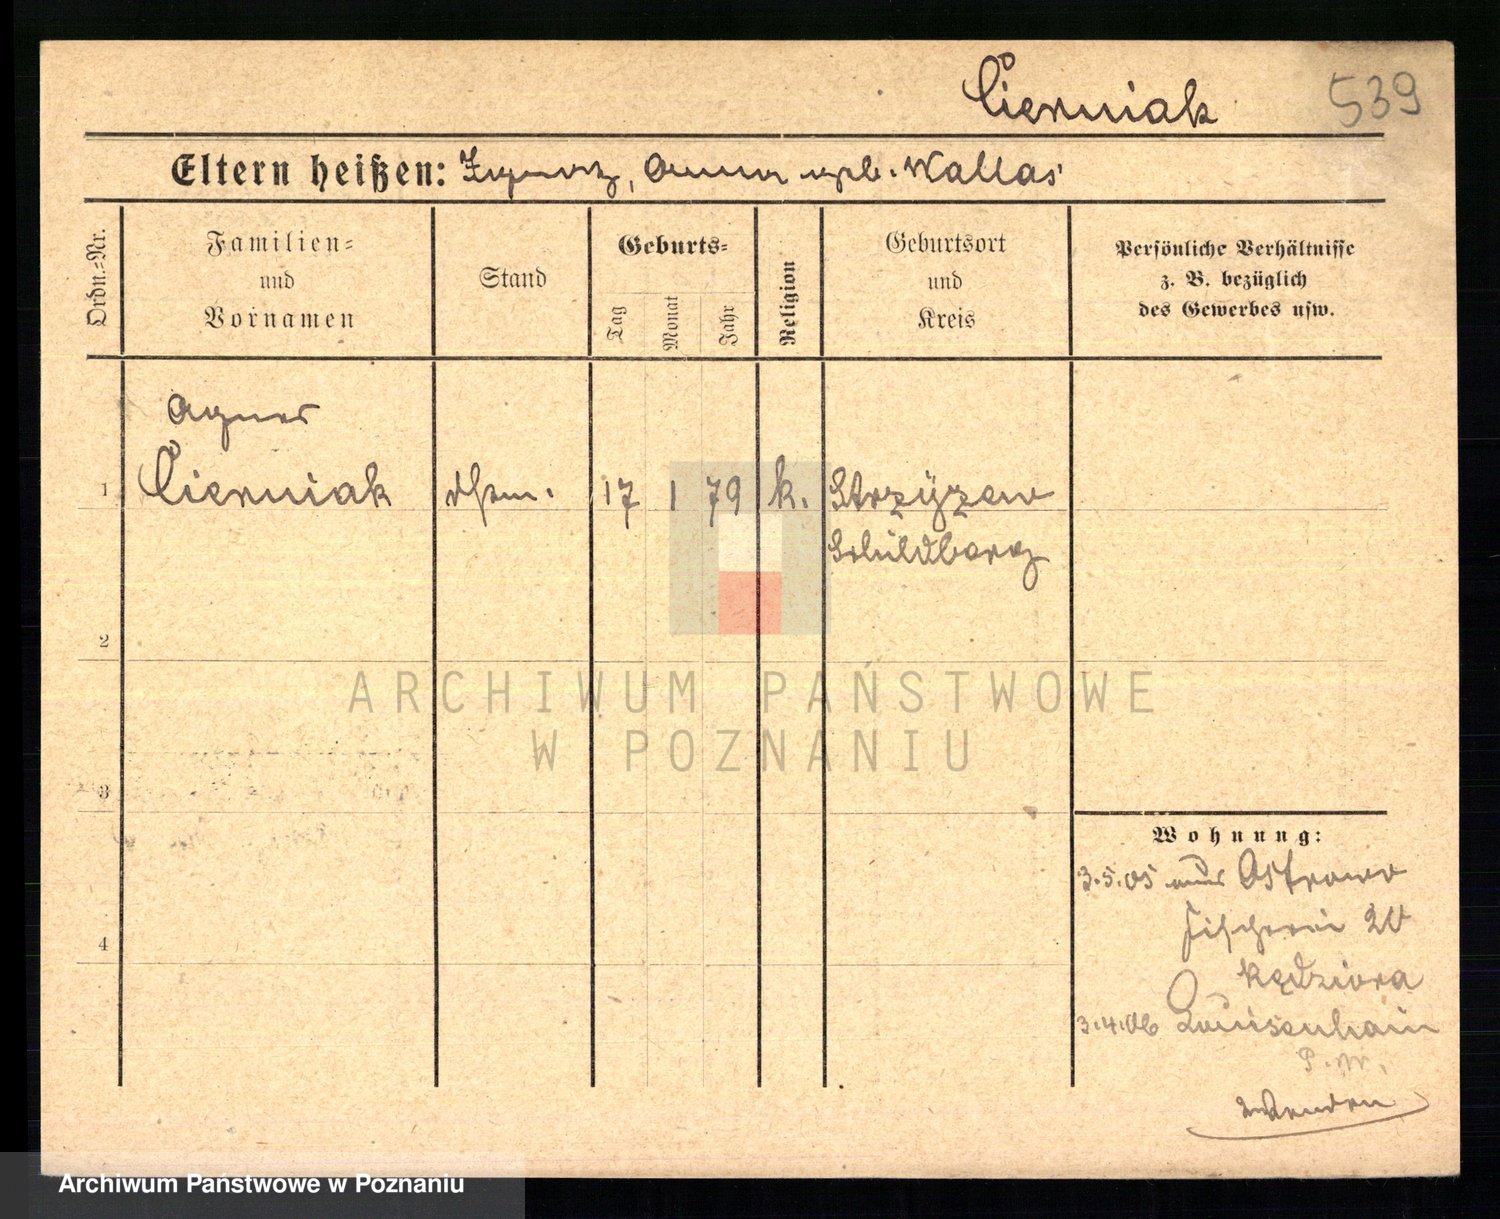 Cierniak 539
Eltern heißen: Ignatz, Anna geb. Wallas
Ordn.=Nr.
Familien=
und
Vornamen
Stand
Geburts=
Tag
Monat
Jahr
Religion
Geburtsort
und
Kreis
Persönliche Verhältnisse
z. B. bezüglich
des Gewerbes usw.
Agnes
1 Cierniak 17 1 79 k. Strzyzew
Schildberg
2
ARCHIWUM PAŃSTWOWE
W POZNANIU
3
Wohnung:
3.5.05 aus Ostrowo
4 Fischerei 20
Kędziora
3.4.06 Louisenhain
P. W.
wenden
Archiwum Państwowe w Poznaniu